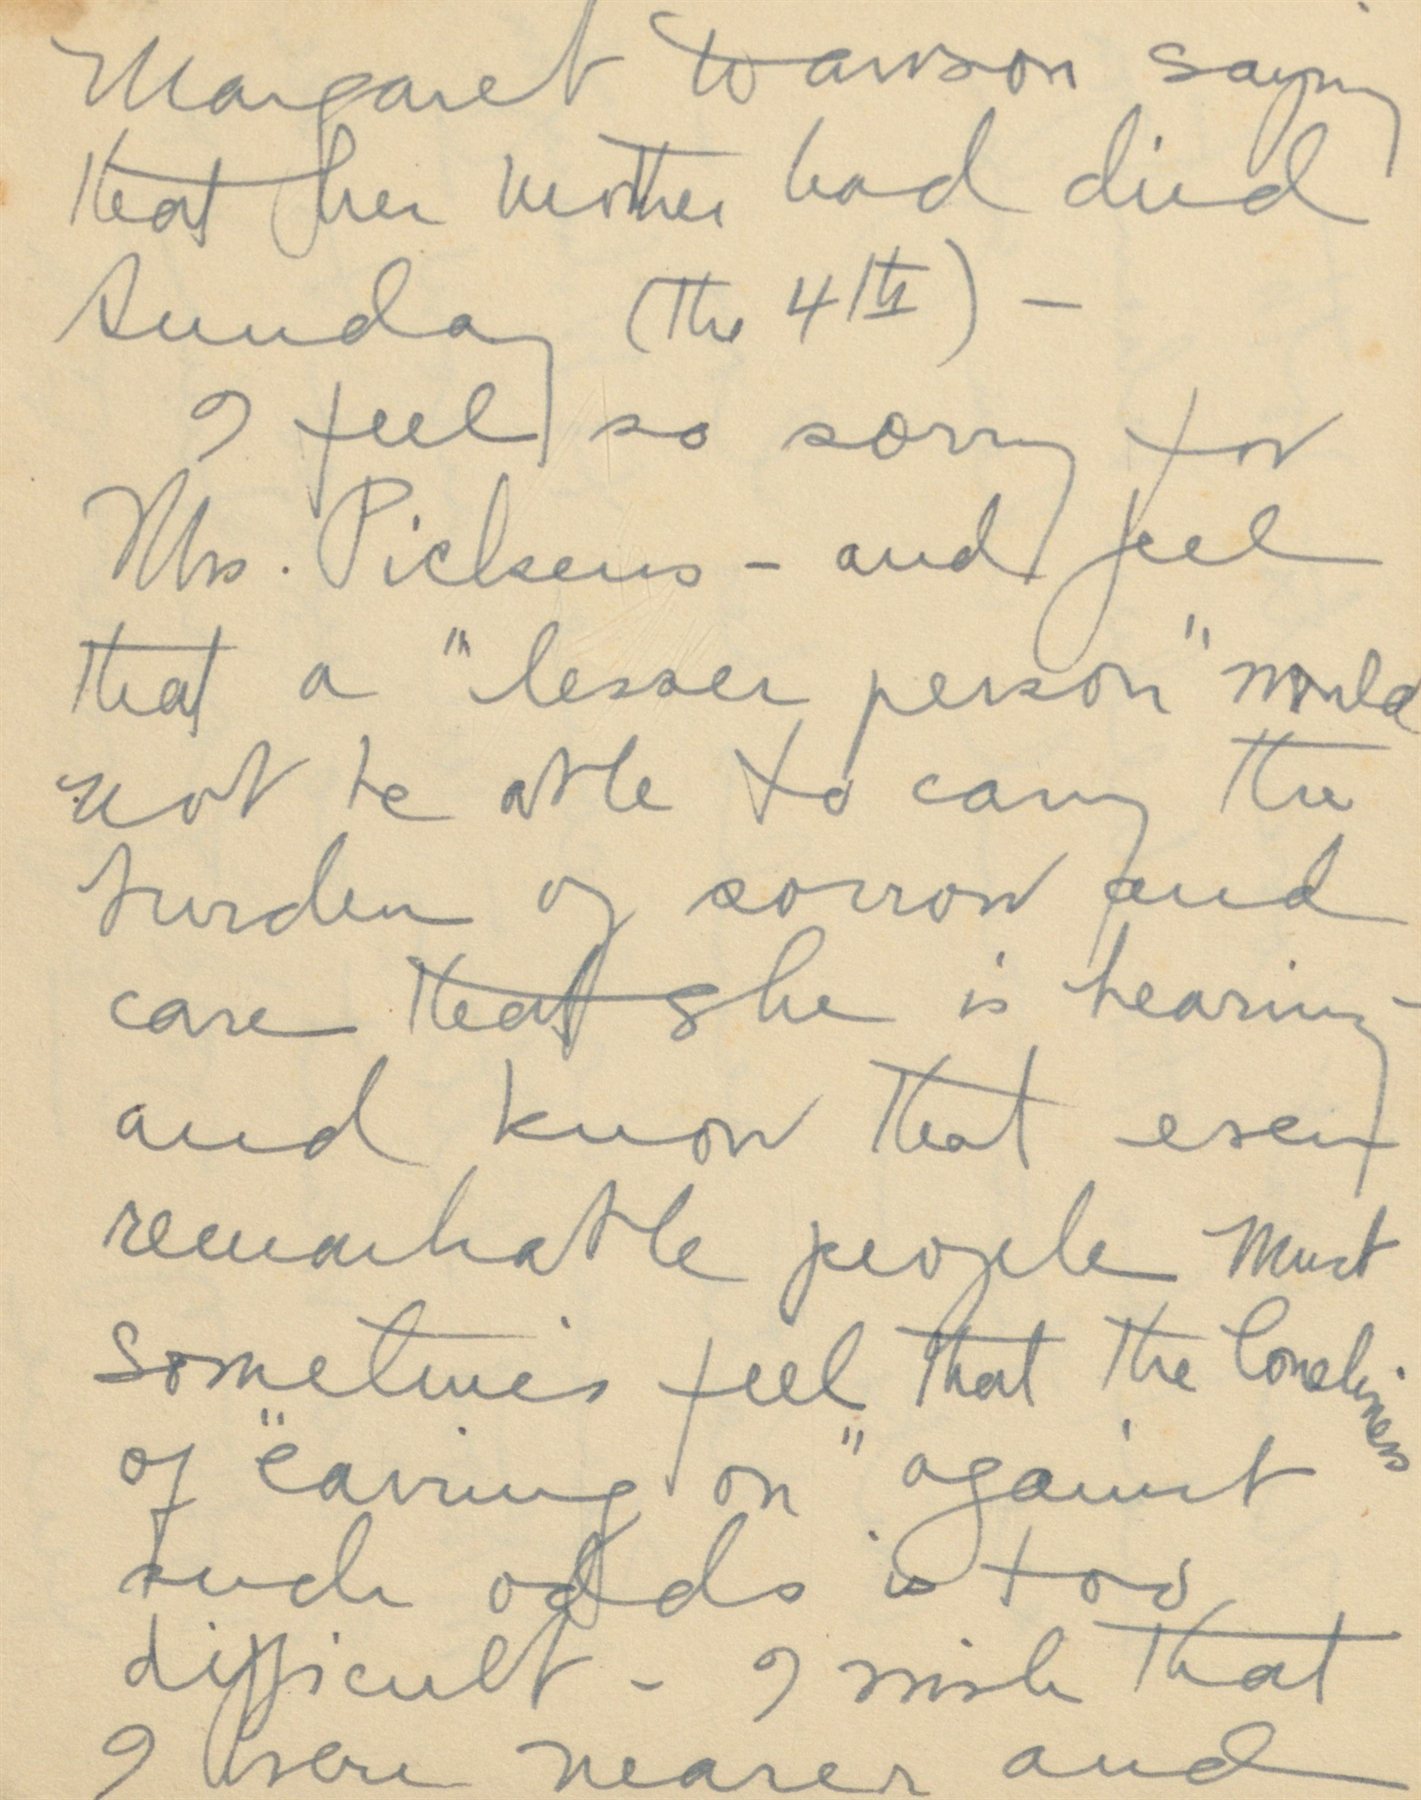 Margaret Lawson saying
that her mother had died
Sunday (the 4th) -
I feel so sorry for
Mrs. Pickens - and feel
that a "lesser person" would
not be able to carry the
burden of sorrow and
care that she is bearing -
and know that even
remarkable people must
sometimes feel that the loneliness
of "carring on" against
such odds is too
difficult - I wish that
I were nearer and